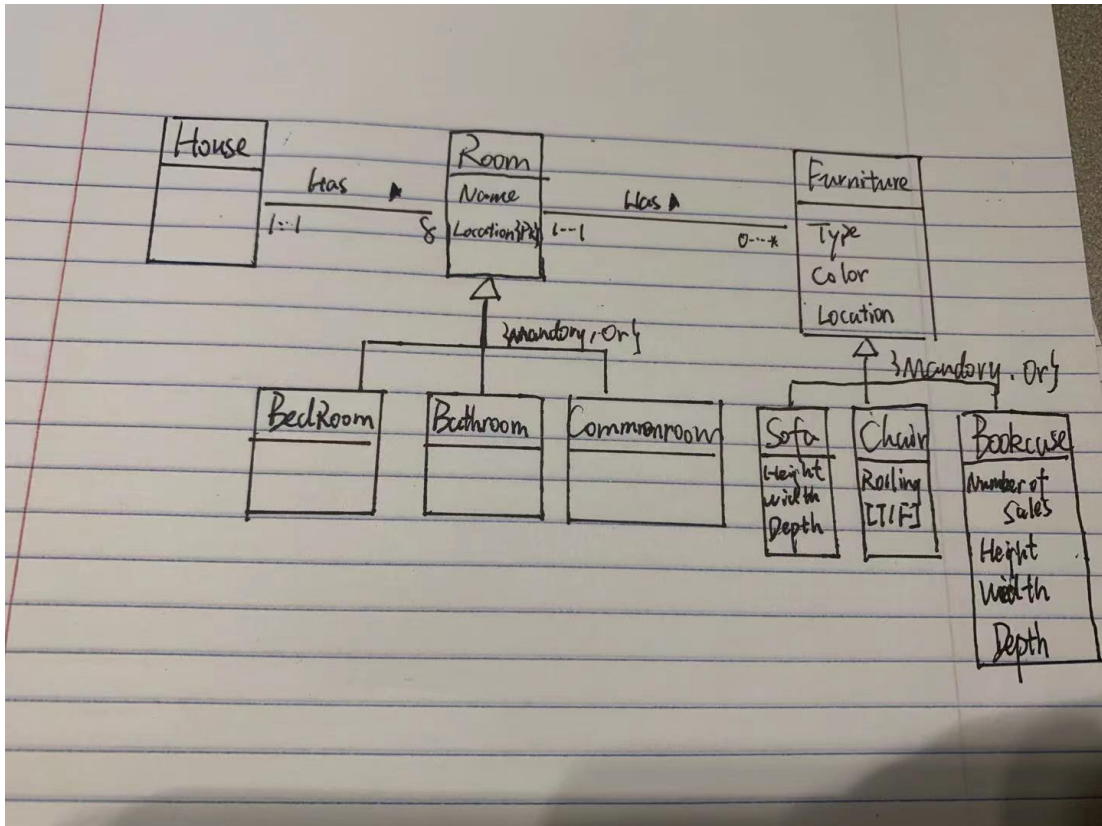 House
Has ▶
1··1
8
Room
Name
Location{PK}
Has ▶
1···1
0····*
Furniture
Type
Color
Location
}Mandory, Or}
BedRoom
Bathroom
Commonroom
}Mandory, Or}
Sofa
Height
width
Depth
Chair
Rolling
[T/F]
Bookcase
Number of
Sales
Height
Width
Depth